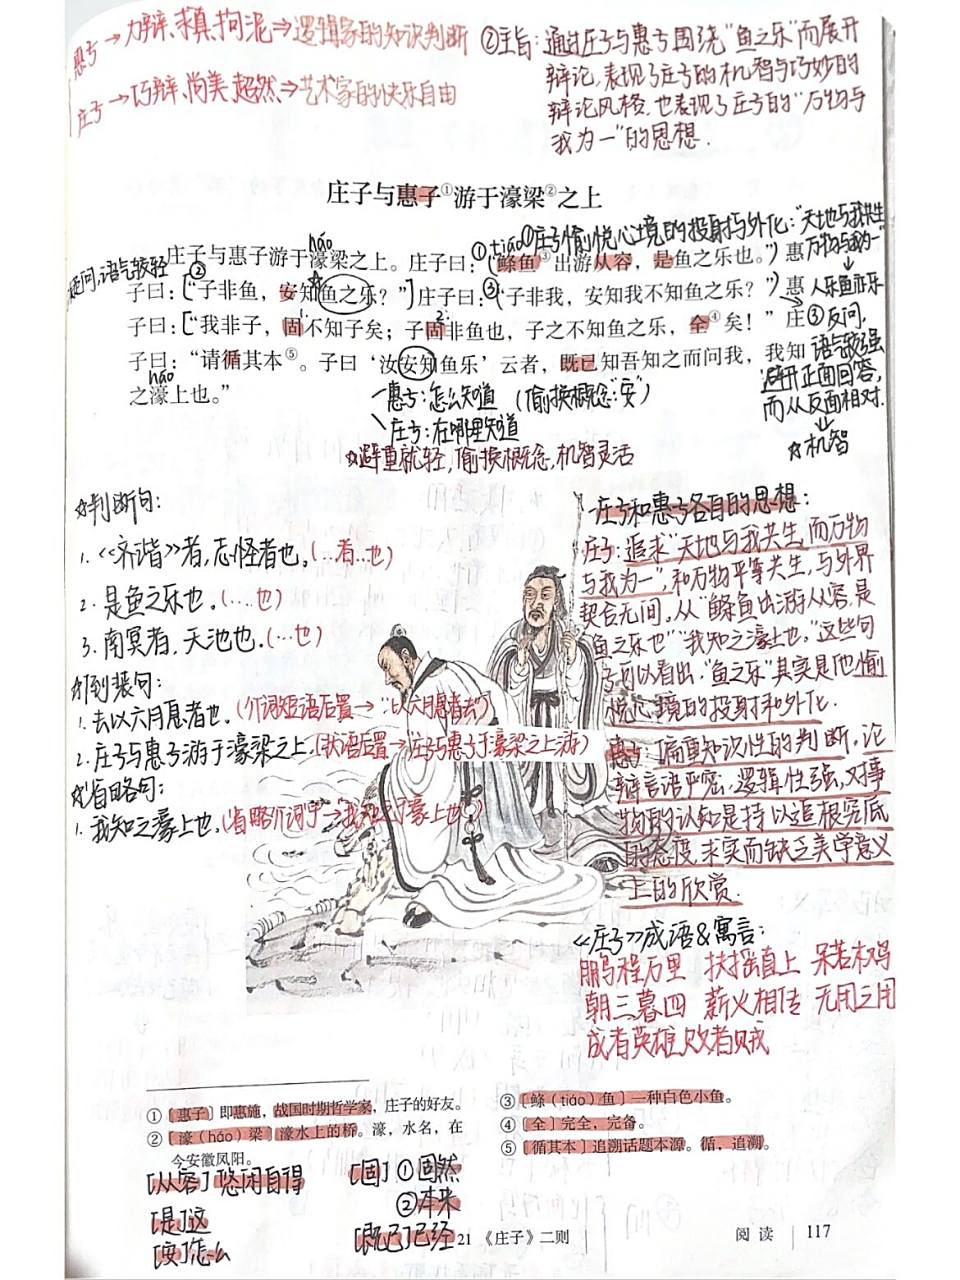 惠子→力辩、求真、拘泥⇒逻辑家的知识判断
庄子→巧辩、尚美、超然⇒艺术家的快乐自由
②主旨：通过庄子与惠子围绕“鱼之乐”而展开
辩论，表现了庄子的机智与巧妙的
辩论风格，也表现了庄子的“万物与
我为一”的思想．
庄子与惠子①游于濠梁②之上
háo
①tiáo
①庄子愉悦心境的投射与外化：“天地与我共生，
万物与我为一”
↓
人乐鱼亦乐
疑问，语气较轻
②
庄子与惠子游于濠梁之上。庄子曰：“鲦鱼③出游从容，是鱼之乐也。”惠
子曰：“子非鱼，安知鱼之乐？”庄子曰：③“子非我，安知我不知鱼之乐？”惠
1.
2.
子曰：“我非子，固不知子矣；子固非鱼也，子之不知鱼之乐，全④矣！”庄
子曰：“请循其本⑤。子曰‘汝安知鱼乐’云者，既已知吾知之而问我，我知
háo
之濠上也。”
③反问，
语气较强
避开正面回答，
而从反面相对．
↓
☆机智
惠子：怎么知道（偷换概念“安”）
庄子：在哪里知道
☆避重就轻，偷换概念，机智灵活
☆判断句：
1.《齐谐》者，志怪者也。（…者…也）
2.是鱼之乐也。（…也）
3.南冥者，天池也．（…也）
☆倒装句：
1.去以六月息者也．（介词短语后置→“以六月息者去”）
2.庄子与惠子游于濠梁之上．（状语后置→庄子与惠子于濠梁之上游）
☆省略句：
1.我知之濠上也．（省略介词“于”→我知之于濠上也．）
庄子和惠子各自的思想：
庄子：追求“天地与我共生，而万物
与我为一”，和万物平等共生，与外界
契合无间。从“鲦鱼出游从容，是
鱼之乐也”“我知之濠上也。”这些句
子可以看出，“鱼之乐”其实是他愉
悦心境的投射和外化．
惠子：偏重知识性的判断，论
辩言语严密，逻辑性强，对事
物的认知是持以追根究底
的态度，求实而缺乏美学意义
上的欣赏．
《庄子》成语&寓言：
鹏鸟程万里 扶摇直上 呆若木鸡
朝三暮四 薪火相传 无用之用
成者英雄败者贼
①〔惠子〕即惠施，战国时期哲学家，庄子的好友。
②〔濠（háo）梁〕濠水上的桥。濠，水名，在
今安徽凤阳。
③〔鲦（tiáo）鱼〕一种白色小鱼。
④〔全〕完全，完备。
⑤〔循其本〕追溯话题本源。循，追溯。
[从容]悠闲自得
[是]这
[安]怎么
[固]①固然
②本来
[既已]已经
21《庄子》二则
阅读 117